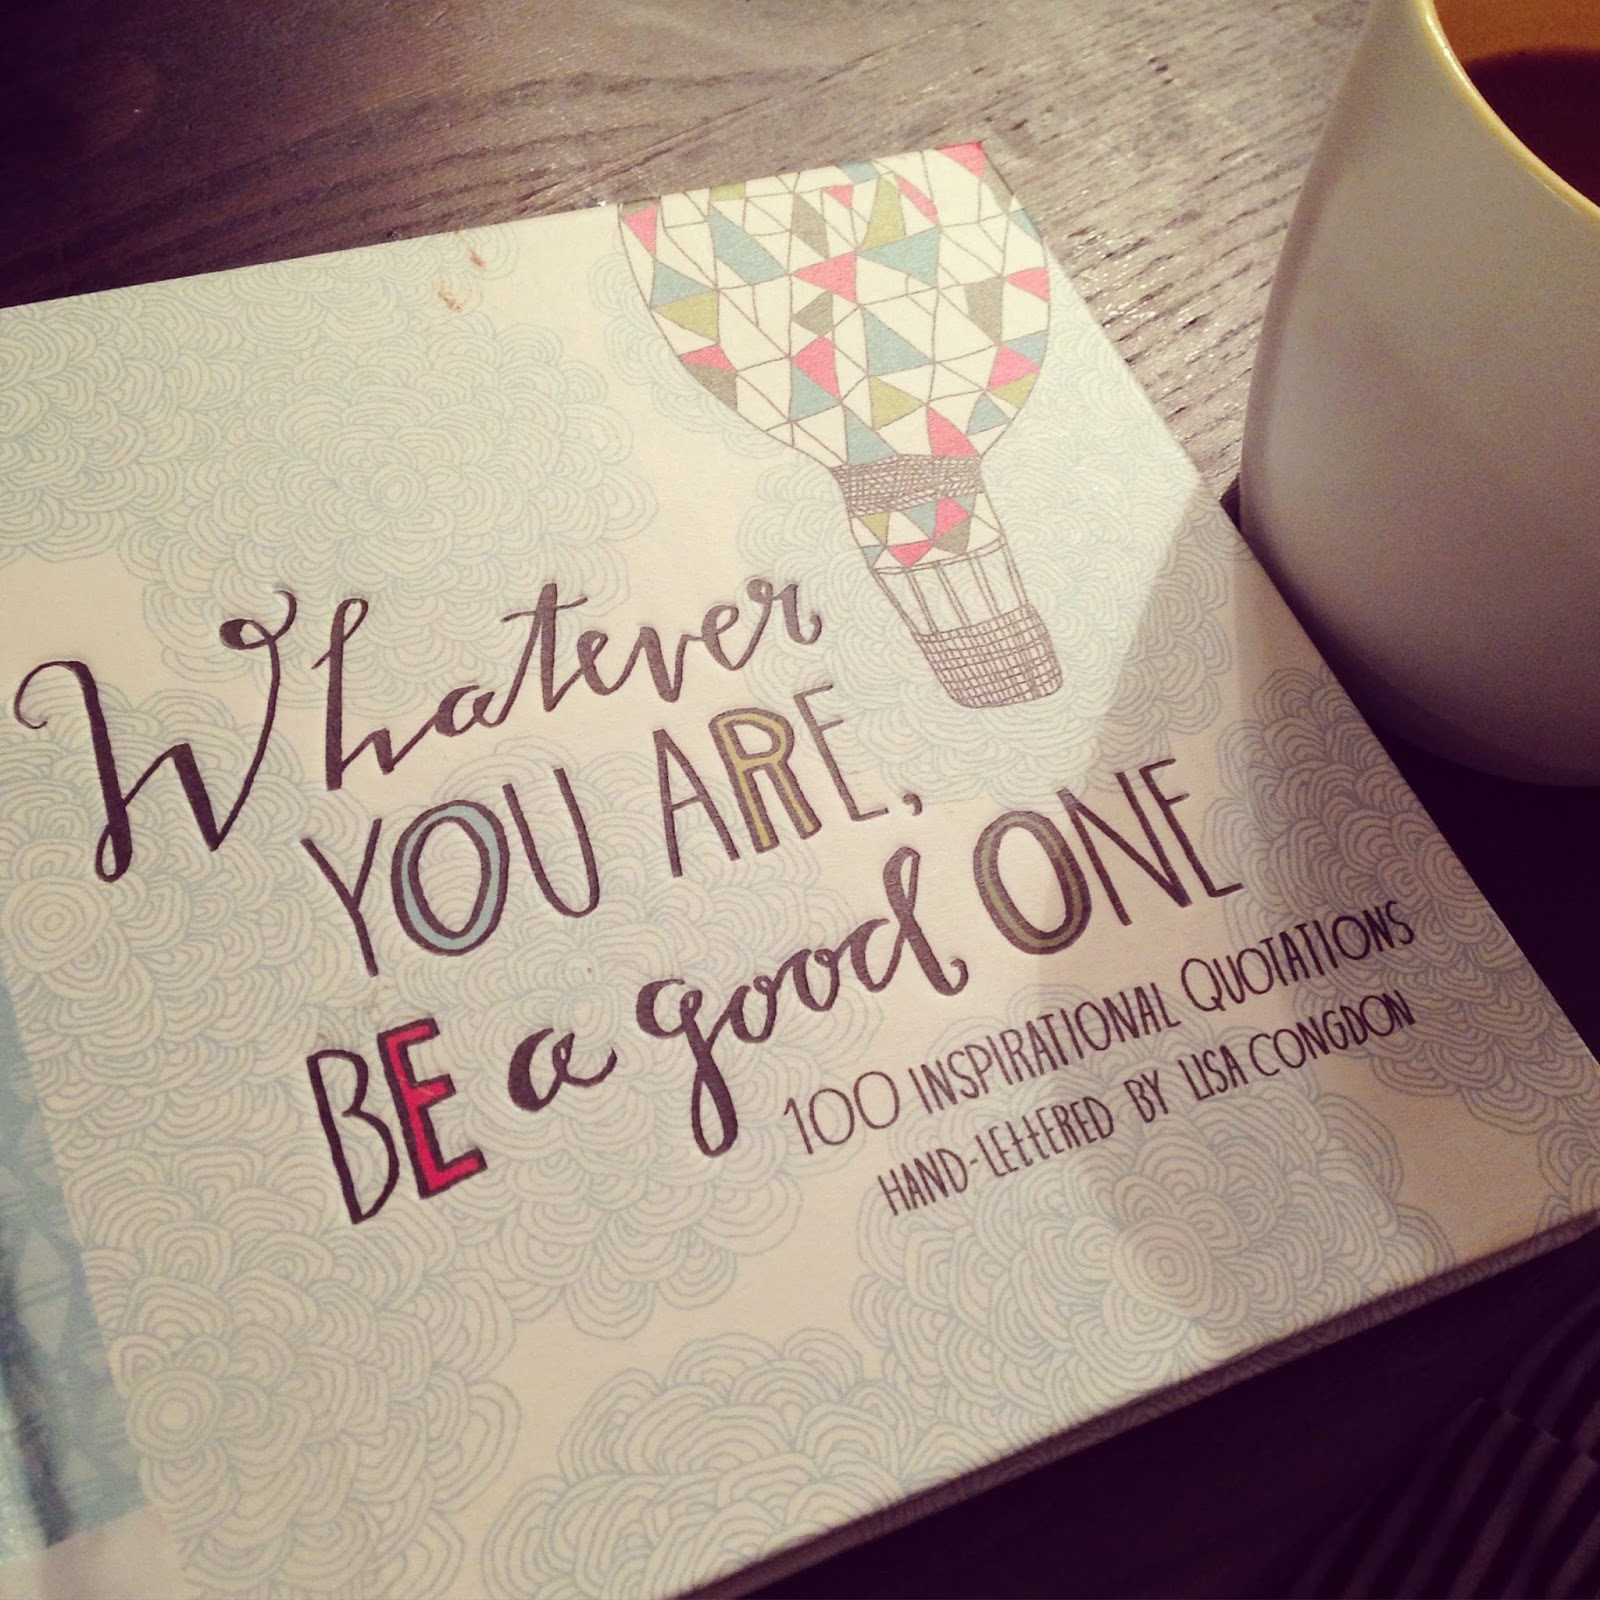 Whatever
YOU ARE,
BE a good ONE
100 INSPIRATIONAL QUOTATIONS
HAND-LETTERED BY LISA CONGDON